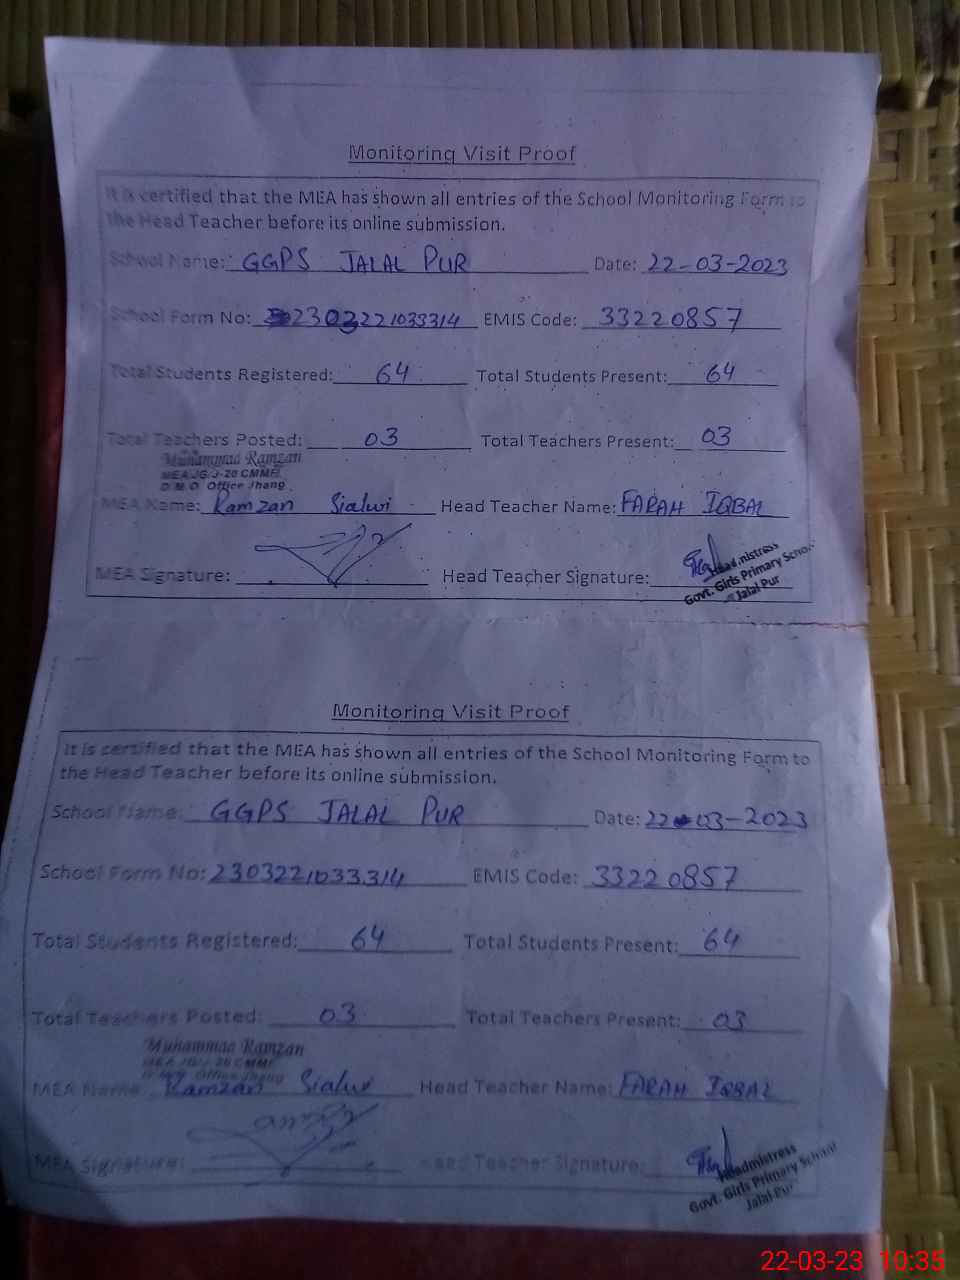 Monitoring Visit Proof
It is certified that the MEA has shown all entries of the School Monitoring Form to
the Head Teacher before its online submission.
School Name: GGPS JALAL PUR Date: 22-03-2023
School Form No: 2303221033314 EMIS Code: 33220857
Total Students Registered: 64 Total Students Present: 64
Total Teachers Posted: 03 Total Teachers Present: 03
Muhammad Ramzan
MEA/JG/J-20 CMMF
D.M.O. Office Jhang
MEA Name: Ramzan Sialwi Head Teacher Name: FARAH IQBAL
MEA Signature: Head Teacher Signature:
Headmistress
Govt. Girls Primary School
Jalal Pur
Monitoring Visit Proof
It is certified that the MEA has shown all entries of the School Monitoring Form to
the Head Teacher before its online submission.
School Name: GGPS JALAL PUR Date: 22-03-2023
School Form No: 2303221033314 EMIS Code: 33220857
Total Students Registered: 64 Total Students Present: 64
Total Teachers Posted: 03 Total Teachers Present: 03
Muhammad Ramzan
MEA/JG/J-20 CMMF
Office Jhang
MEA Name Ramzan Sialwi Head Teacher Name: FARAH IQBAL
MEA Signature: Head Teacher Signature:
Headmistress
Govt. Girls Primary School
Jalal Pur
22-03-23 10:35